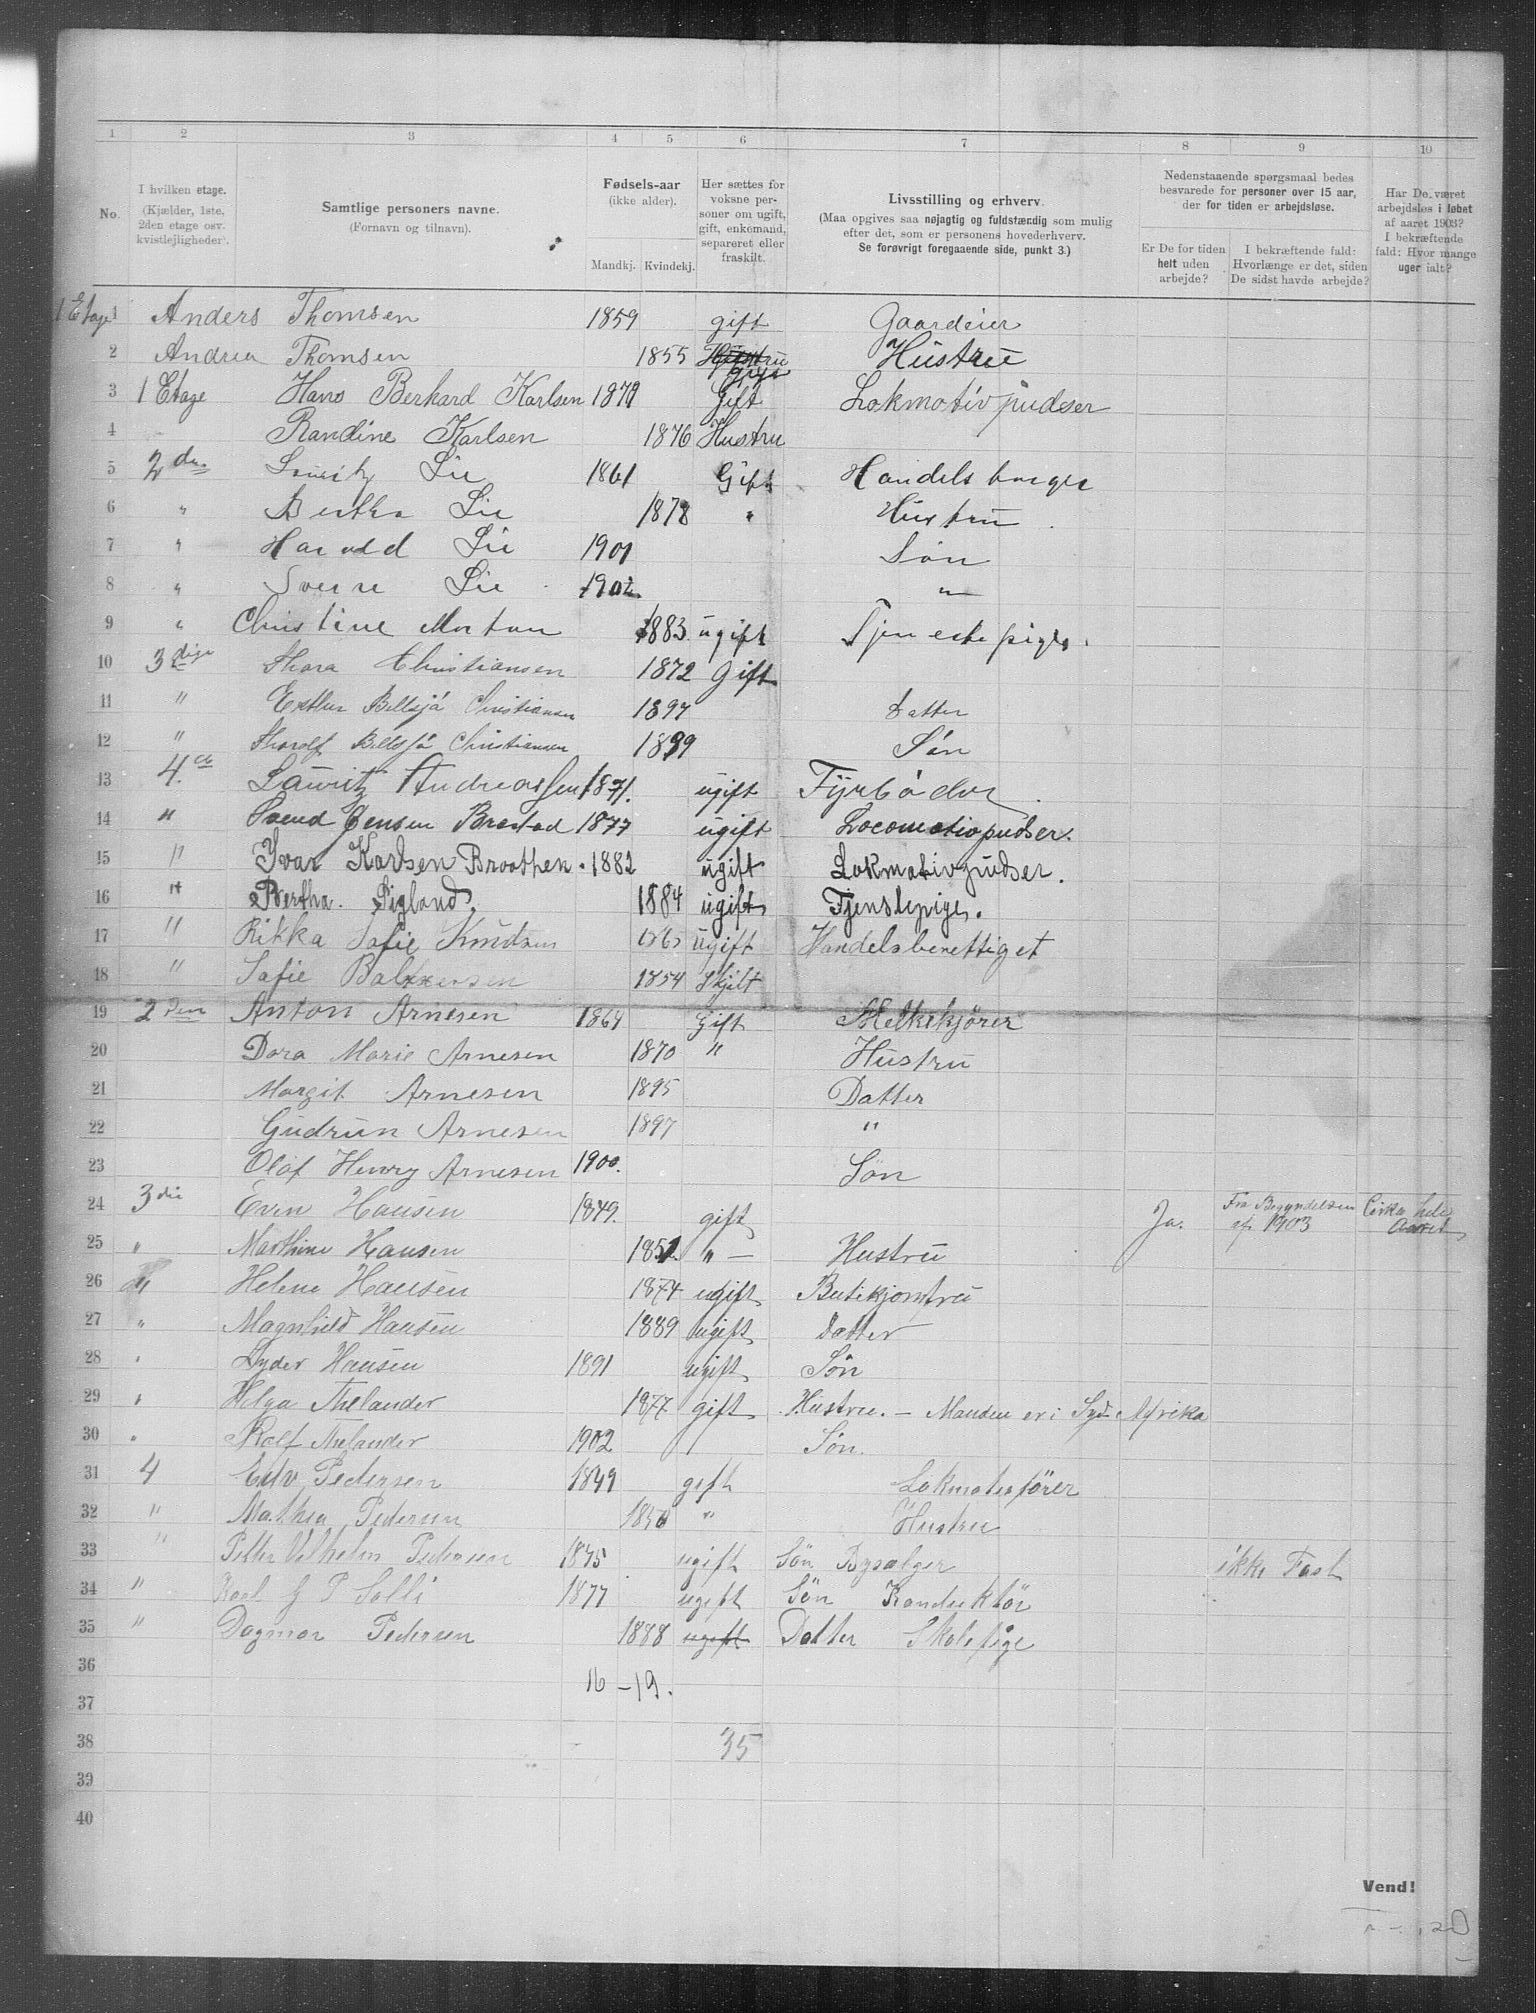 1 2 3 4 5 6 7 8 9 10
No.
I hvilken etage. (Kjælder, 1ste, 2den etage osv. kvistleiligheder).
Samtlige personers navne. (Fornavn og tilnavn).
Fødsels-aar (ikke alder). Mandkj. Kvindekj.
Her sættes for voksne personer om ugift, gift, enkemand, separeret eller fraskilt.
Livsstilling og erhverv. (Maa opgives saa nøjagtig og fuldstændig som mulig efter det, som er personens hovederhverv. Se forøvrigt foregaaende side, punkt 3.)
Nedenstaaende spørgsmaal bedes besvarede for personer over 15 aar, der for tiden er arbejdsløse.
Er De for tiden helt uden arbejde?
I bekræftende fald: Hvorlænge er det, siden De sidst havde arbejde?
Har De været arbejdsløs i løbet af aaret 1903? I bekræftende fald: Hvor mange uger ialt?
1 1 Etage Anders Thomsen 1859 gift Gaardeier
2 Andrea Thomsen 1855 Hustru gift Hustru
3 1 Etage Hans Berhard Karlsen 1879 Gift Lokmotivpudser
4 Randine Karlsen 1876 Hustru
5 2den Lauritz Lie 1861 Gift Handelsborger
6 " Bertha Lie 1878 " Hustru
7 " Harald Lie 1901 Søn
8 " Sverre Lie 1902 "
9 " Christine Morton 1883 ugift Tjenestepige.
10 3die Thora Christiansen 1872 Gift
11 " Esther Christiansen 1897 Datter
12 " Thorolf Christiansen 1899 Søn
13 4.de Lauritz Andreassen 1871. ugift Fyrbøder
14 " Svend Jensen Brastad 1877 ugift Locomotivpudser.
15 " Yvar Karlsen Braathen. 1882 ugift Lokmotivpudser.
16 " Bertha. Sigland. 1884 ugift Tjenstepige.
17 " Rikka Sofie Knudsen 1865 ugift Handelsberettiget
18 " Sofie Baltzersen 1854 Skjilt
19 2den Anton Arnesen 1864 Gift Melkekjører
20 Dora Marie Arnesen 1870 " Hustru
21 Margit Arnesen 1895 Datter
22 Gudrun Arnesen 1897 "
23 Olaf Henry Arnesen 1900. Søn
24 3die Even Hansen 1849. gift Ja. Fra Begyndelsen af 1903 Cirka hele Aaret
25 " Marthine Hansen 1851 " — Hustru
26 " Helene Hansen 1874 ugift Butikjomfru
27 " Magnhild Hansen 1889 ugift Datter
28 " Lyder Hansen 1891 ugift Søn
29 " Helga Thelander 1877 gift Hustru. — Manden er i Syd Afrika
30 " Rolf Thelander 1902 Søn.
31 4 Edv. Pedersen 1849 gift Lokmotivfører
32 " Mathea Pedersen 1850 " Hustru
33 " Petter Vilhelm Pedersen 1875 ugift Søn Bysælger ikke Fast
34 " Karl G P Solli 1877 ugift Søn Konduktør
35 " Dagmar Pedersen 1888 ugift Datter Skolepige
36 16 – 19.
37
38 35
39
40
Vend!